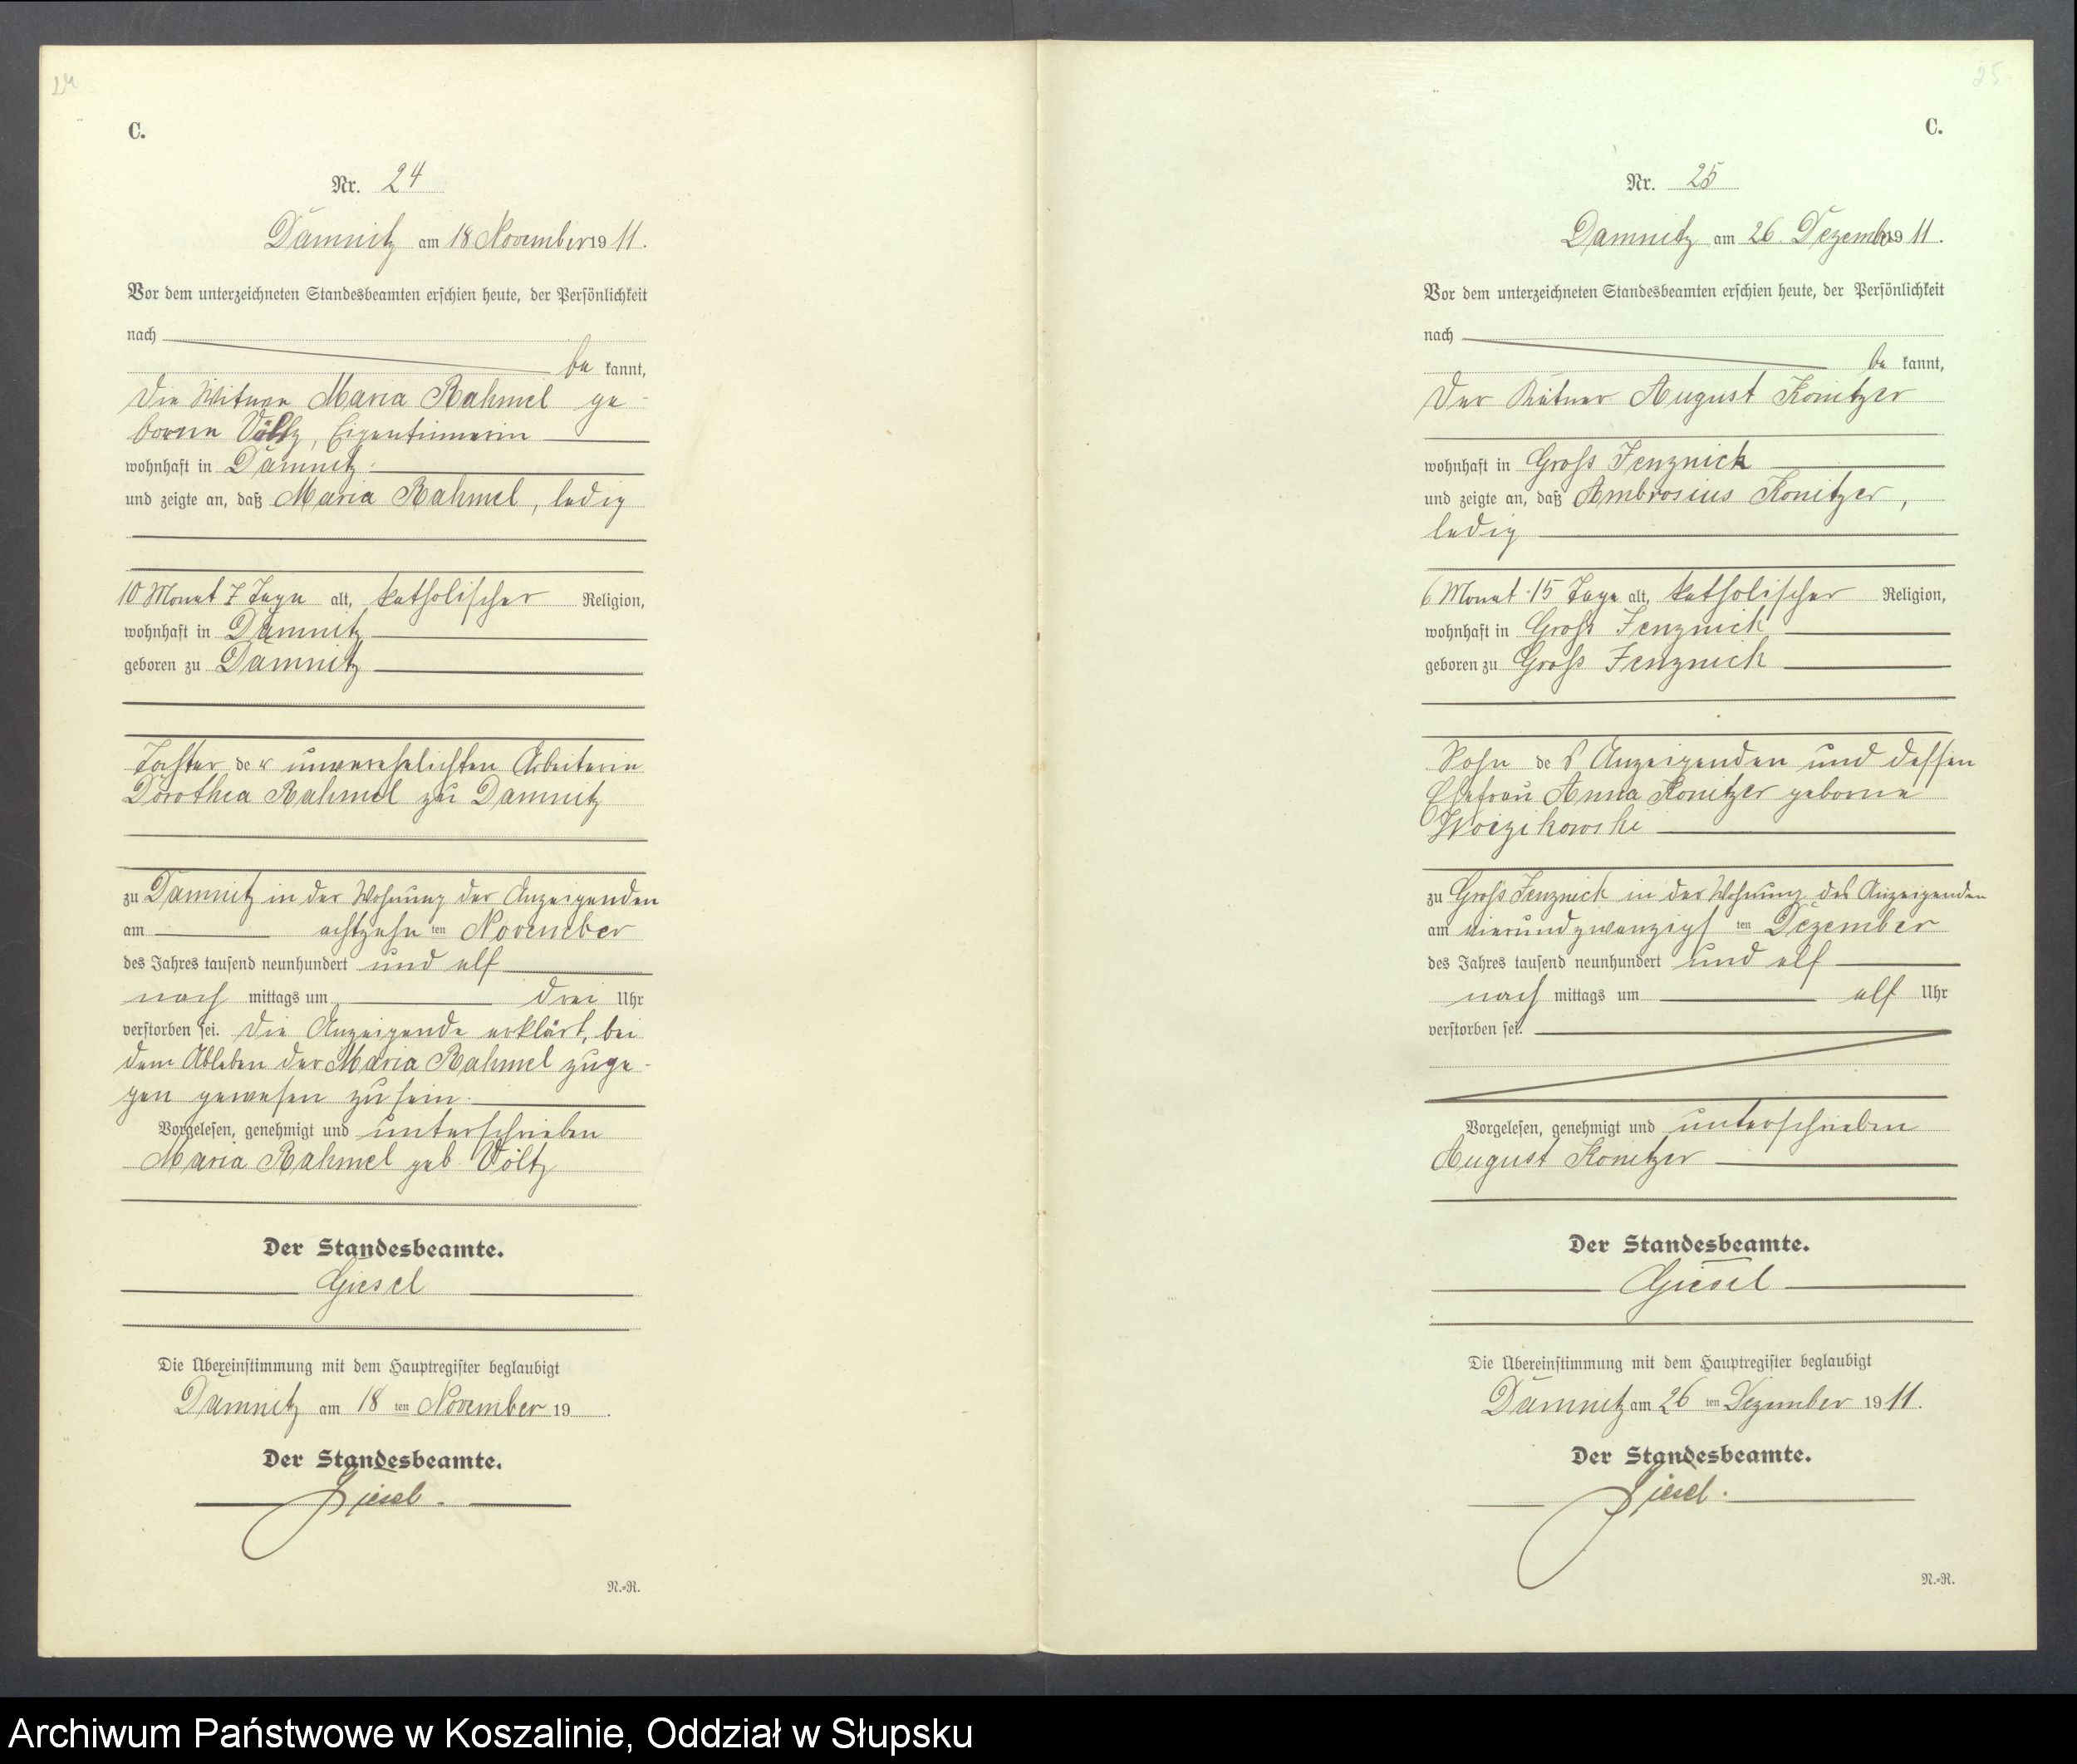 24
C.
Nr. 24
Damnitz am 18 November 19 11.
Vor dem unterzeichneten Standesbeamten erschien heute, der Persönlichkeit
nach
be kannt,
die Witwe Maria Rahmel ge-
borene Völtz, Eigentümerin
wohnhaft in Damnitz
und zeigte an, daß Maria Rahmel, ledig
10 Monat 7 Tage alt, katholischer Religion,
wohnhaft in Damnitz
geboren zu Damnitz
Tochter der unverehelichten Arbeiterin
Dorothea Rahmel zu Damnitz
zu Damnitz in der Wohnung der Anzeigenden
am achtzehn ten November
des Jahres tausend neunhundert und elf
nach mittags um drei Uhr
verstorben sei. Die Anzeigende erklärt, bei
dem Ableben der Maria Rahmel zuge-
gen gewesen zu sein.
Vorgelesen, genehmigt und unterschrieben
Maria Rahmel geb. Völtz
Der Standesbeamte.
Giesel
Die Übereinstimmung mit dem Hauptregister beglaubigt
Damnitz am 18 ten November 19 .
Der Standesbeamte.
Giesel.
N.-R.
25
C.
Nr. 25
Damnitz am 26. Dezember 19 11.
Vor dem unterzeichneten Standesbeamten erschien heute, der Persönlichkeit
nach
be kannt,
der Kätner August Konitzer
wohnhaft in Gross Jenznick
und zeigte an, daß Ambrosius Konitzer,
ledig
6 Monat 15 Tage alt, katholischer Religion,
wohnhaft in Gross Jenznick
geboren zu Gross Jenznick
Sohn des Anzeigenden und dessen
Ehefrau Anna Konitzer geborene
Woizikowski
zu Gross Jenznick in der Wohnung des Anzeigenden
am vierundzwanzigs ten Dezember
des Jahres tausend neunhundert und elf
nach mittags um elf Uhr
verstorben sei.
Vorgelesen, genehmigt und unterschrieben
August Konitzer
Der Standesbeamte.
Giesel
Die Übereinstimmung mit dem Hauptregister beglaubigt
Damnitz am 26 ten Dezember 19 11.
Der Standesbeamte.
Giesel.
N.-R.
Archiwum Państwowe w Koszalinie, Oddział w Słupsku